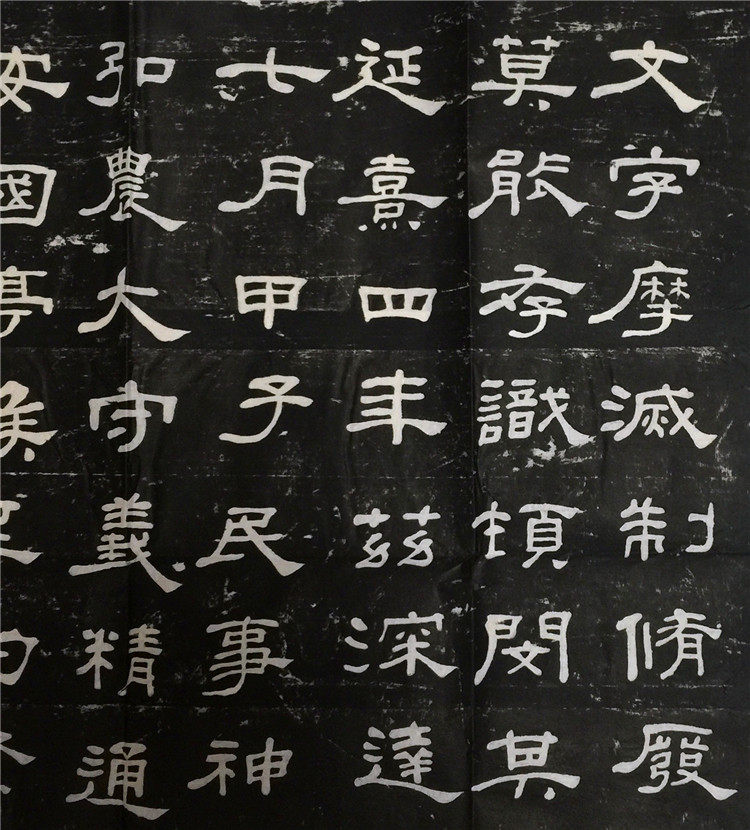 文字摩滅制脩廢
莫能存識頓閔其
延熹四年茲深達
七月甲子民事神
弘農大守義精通
安國亭侯至